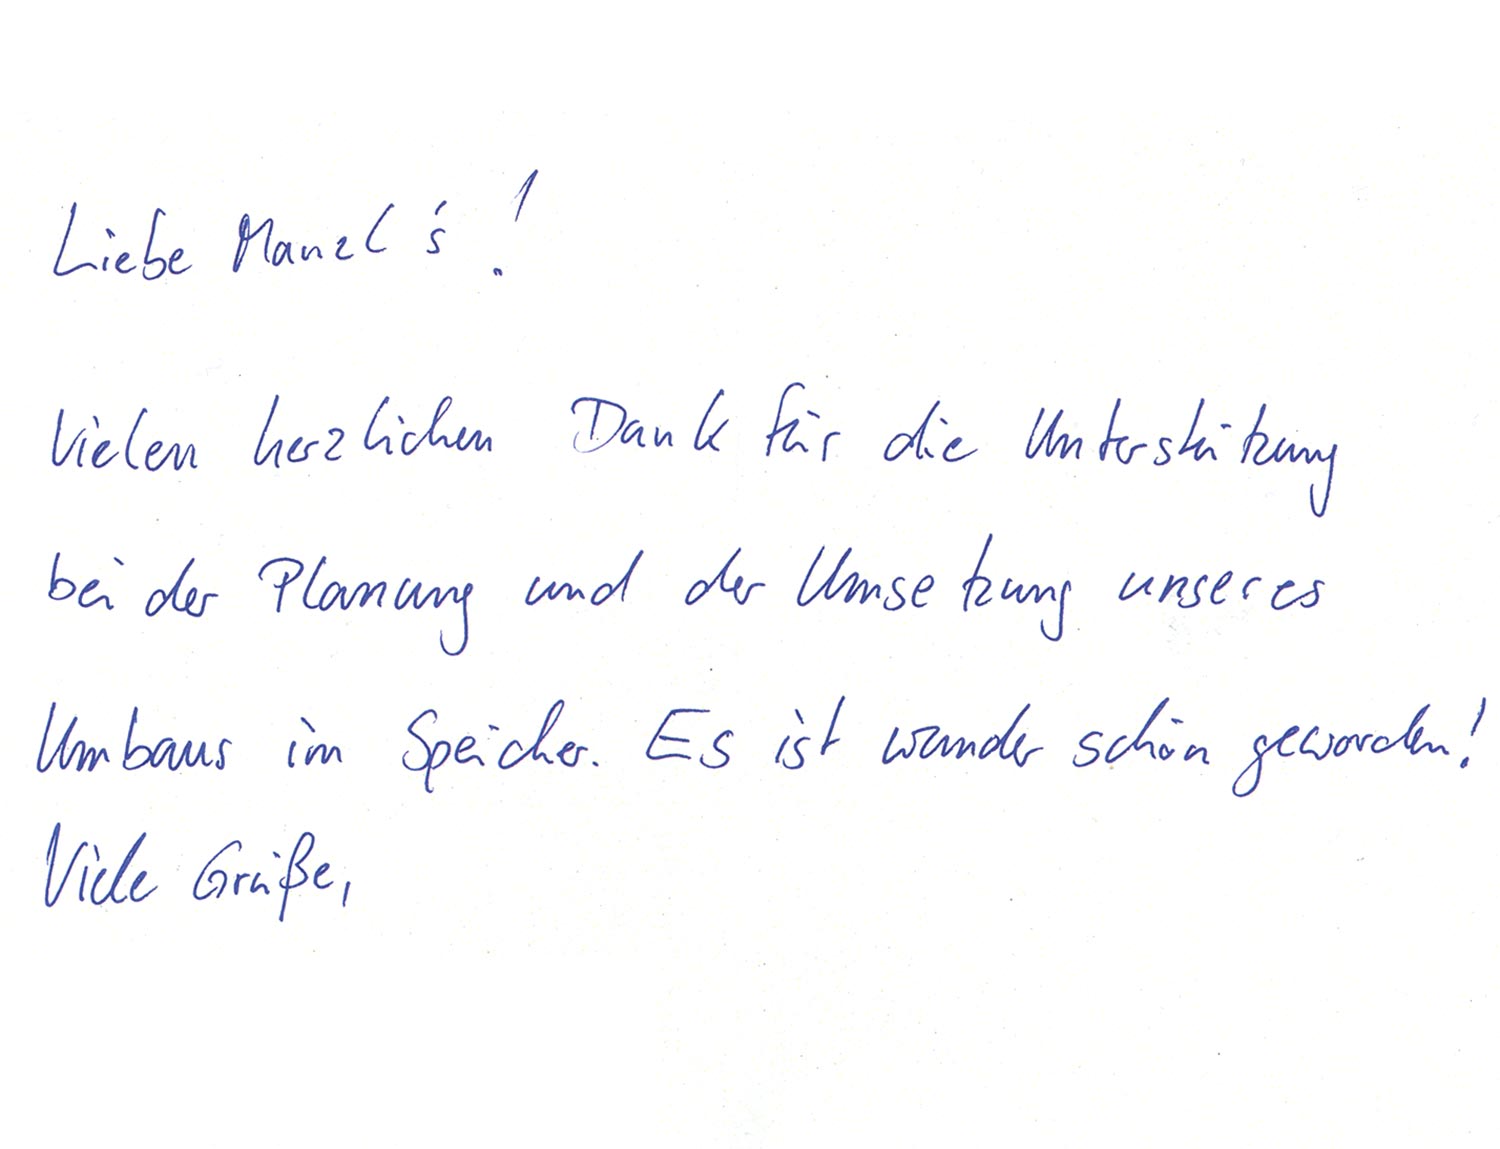 Liebe Manzl's!
Vielen herzlichen Dank für die Unterstützung
bei der Planung und der Umsetzung unseres
Umbaus im Speicher. Es ist wunderschön geworden!
Viele Grüße,